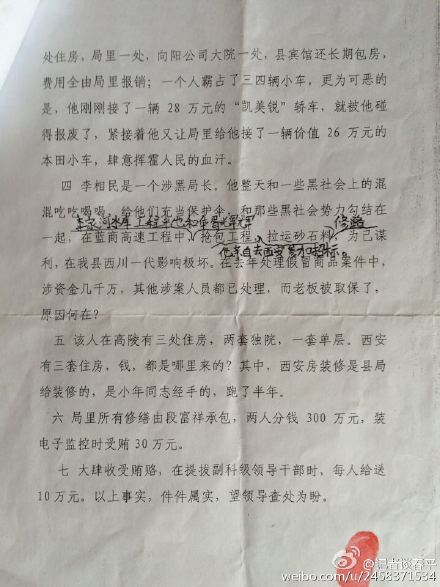 处住房，局里一处，向阳公司大院一处，县宾馆还长期包房，
费用全由局里报销；一个人霸占了三四辆小车，更为可恶的
是，他刚刚接了一辆 28 万元的“凯美锐”轿车，就被他碰
得报废了，紧接着他又让局里给他接了一辆价值 26 万元的
本田小车，肆意挥霍人民的血汗。
四 李相民是一个涉黑局长。他整天和一些黑社会上的混
混吃吃喝喝，给他们充当保护伞，和那些黑社会势力勾结在
李家河水库工程
修路
一起，在蓝商高速工程中，抢包工程，拉运砂石料，为己谋
他亲自去西安
利，在我县西川一代影响极坏。在去年处理假冒商品案件中，
涉资金几千万，其他涉案人员都已处理，而老板被取保了，
原因何在？
五 该人在高陵有三处住房，两套独院，一套单层。西安
有三套住房，钱，都是哪里来的？其中，西安房装修是县局
给装修的，是小年同志经手的，跑了半年。
六 局里所有修缮由段富祥承包，两人分钱 300 万元，装
电子监控时受贿 30 万元。
七 大肆收受贿赂，在提拔副科级领导干部时，每人给送
10 万元。以上事实，件件属实，望领导查处为盼。
@记者谈春平
weibo.com/u/2458371534